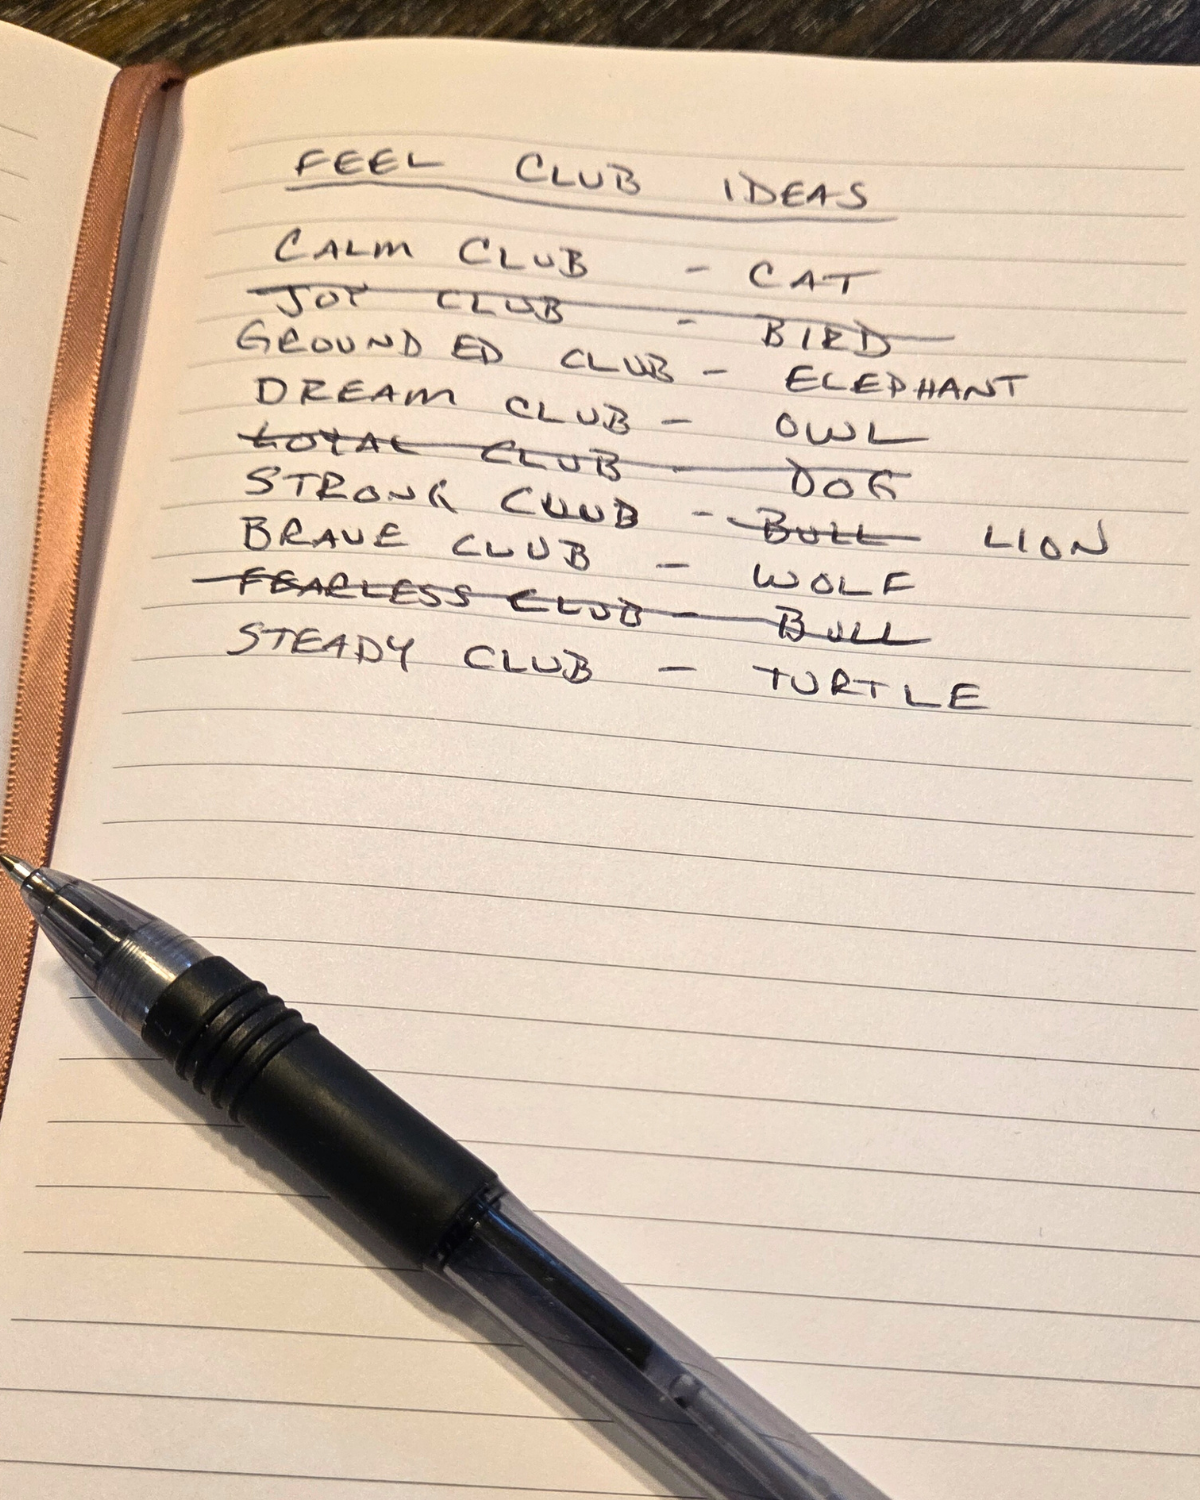 FEEL CLUB IDEAS
CALM CLUB - CAT
JOY CLUB - BIRD
GROUNDED CLUB - ELEPHANT
DREAM CLUB - OWL
LOYAL CLUB - DOG
STRONG CLUB - BULL LION
BRAVE CLUB - WOLF
FEARLESS CLUB - BULL
STEADY CLUB - TURTLE